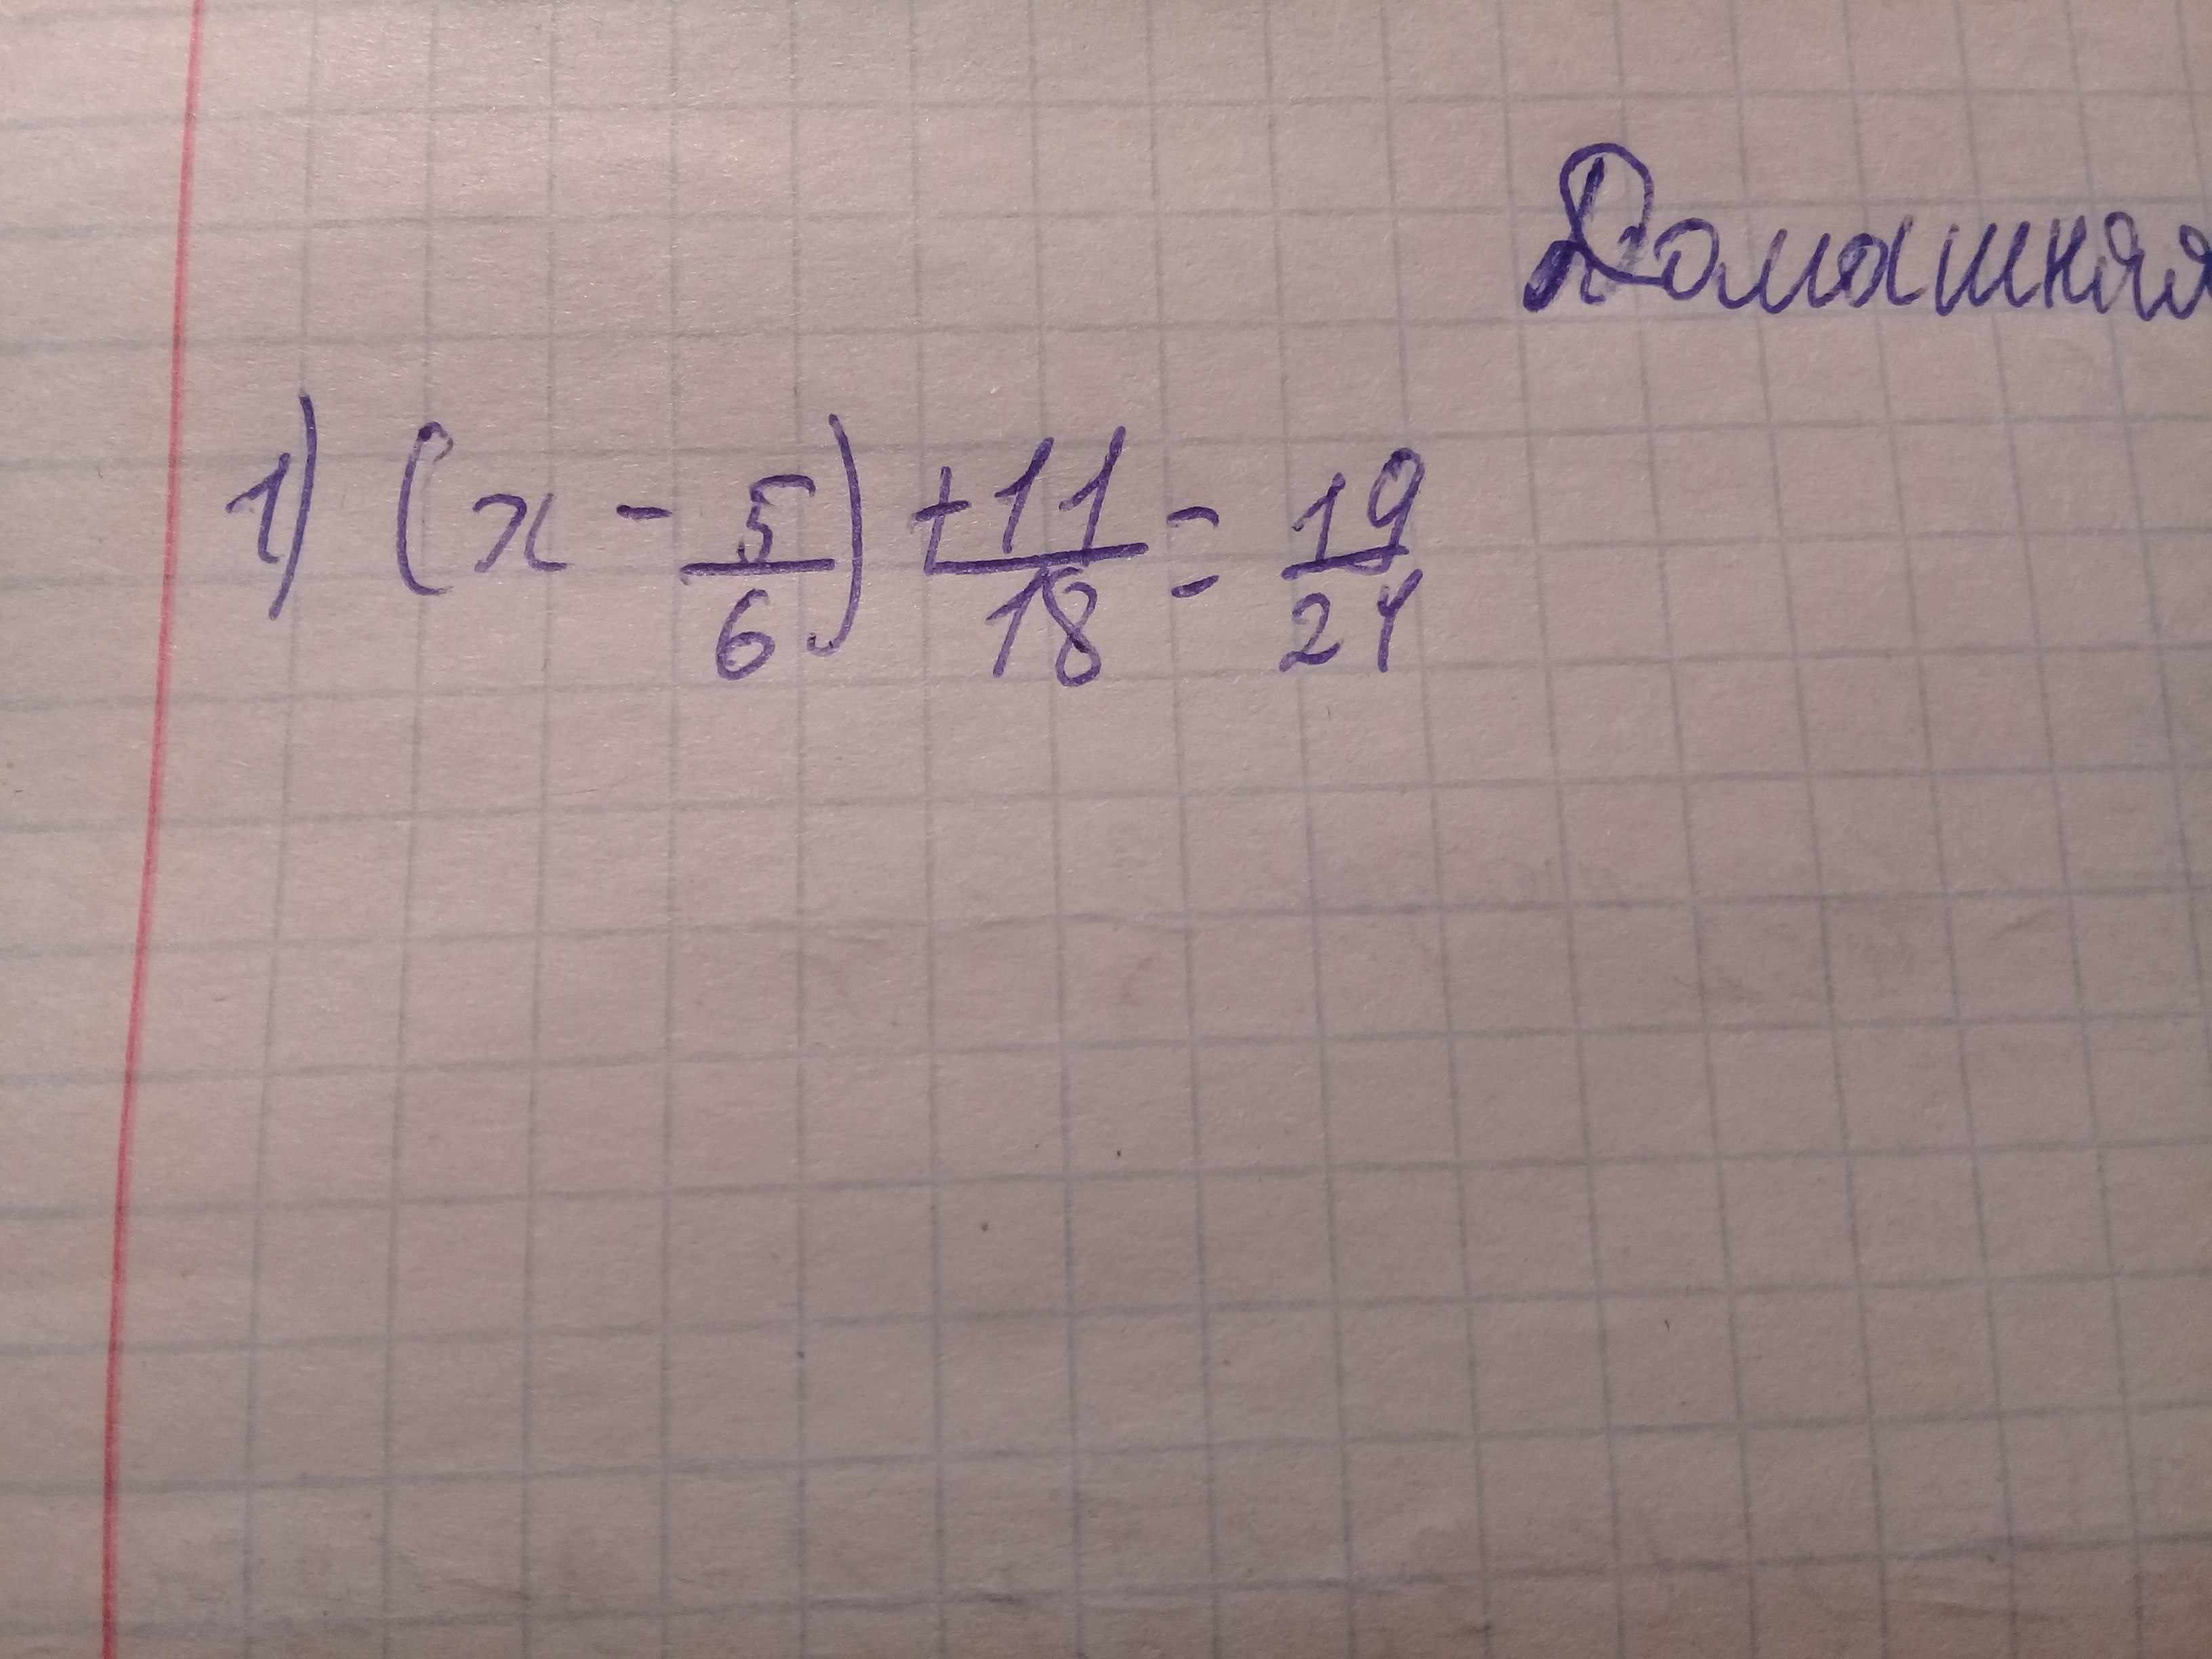 Домашняя
1) (x - 5/6) + 11/18 = 19/24